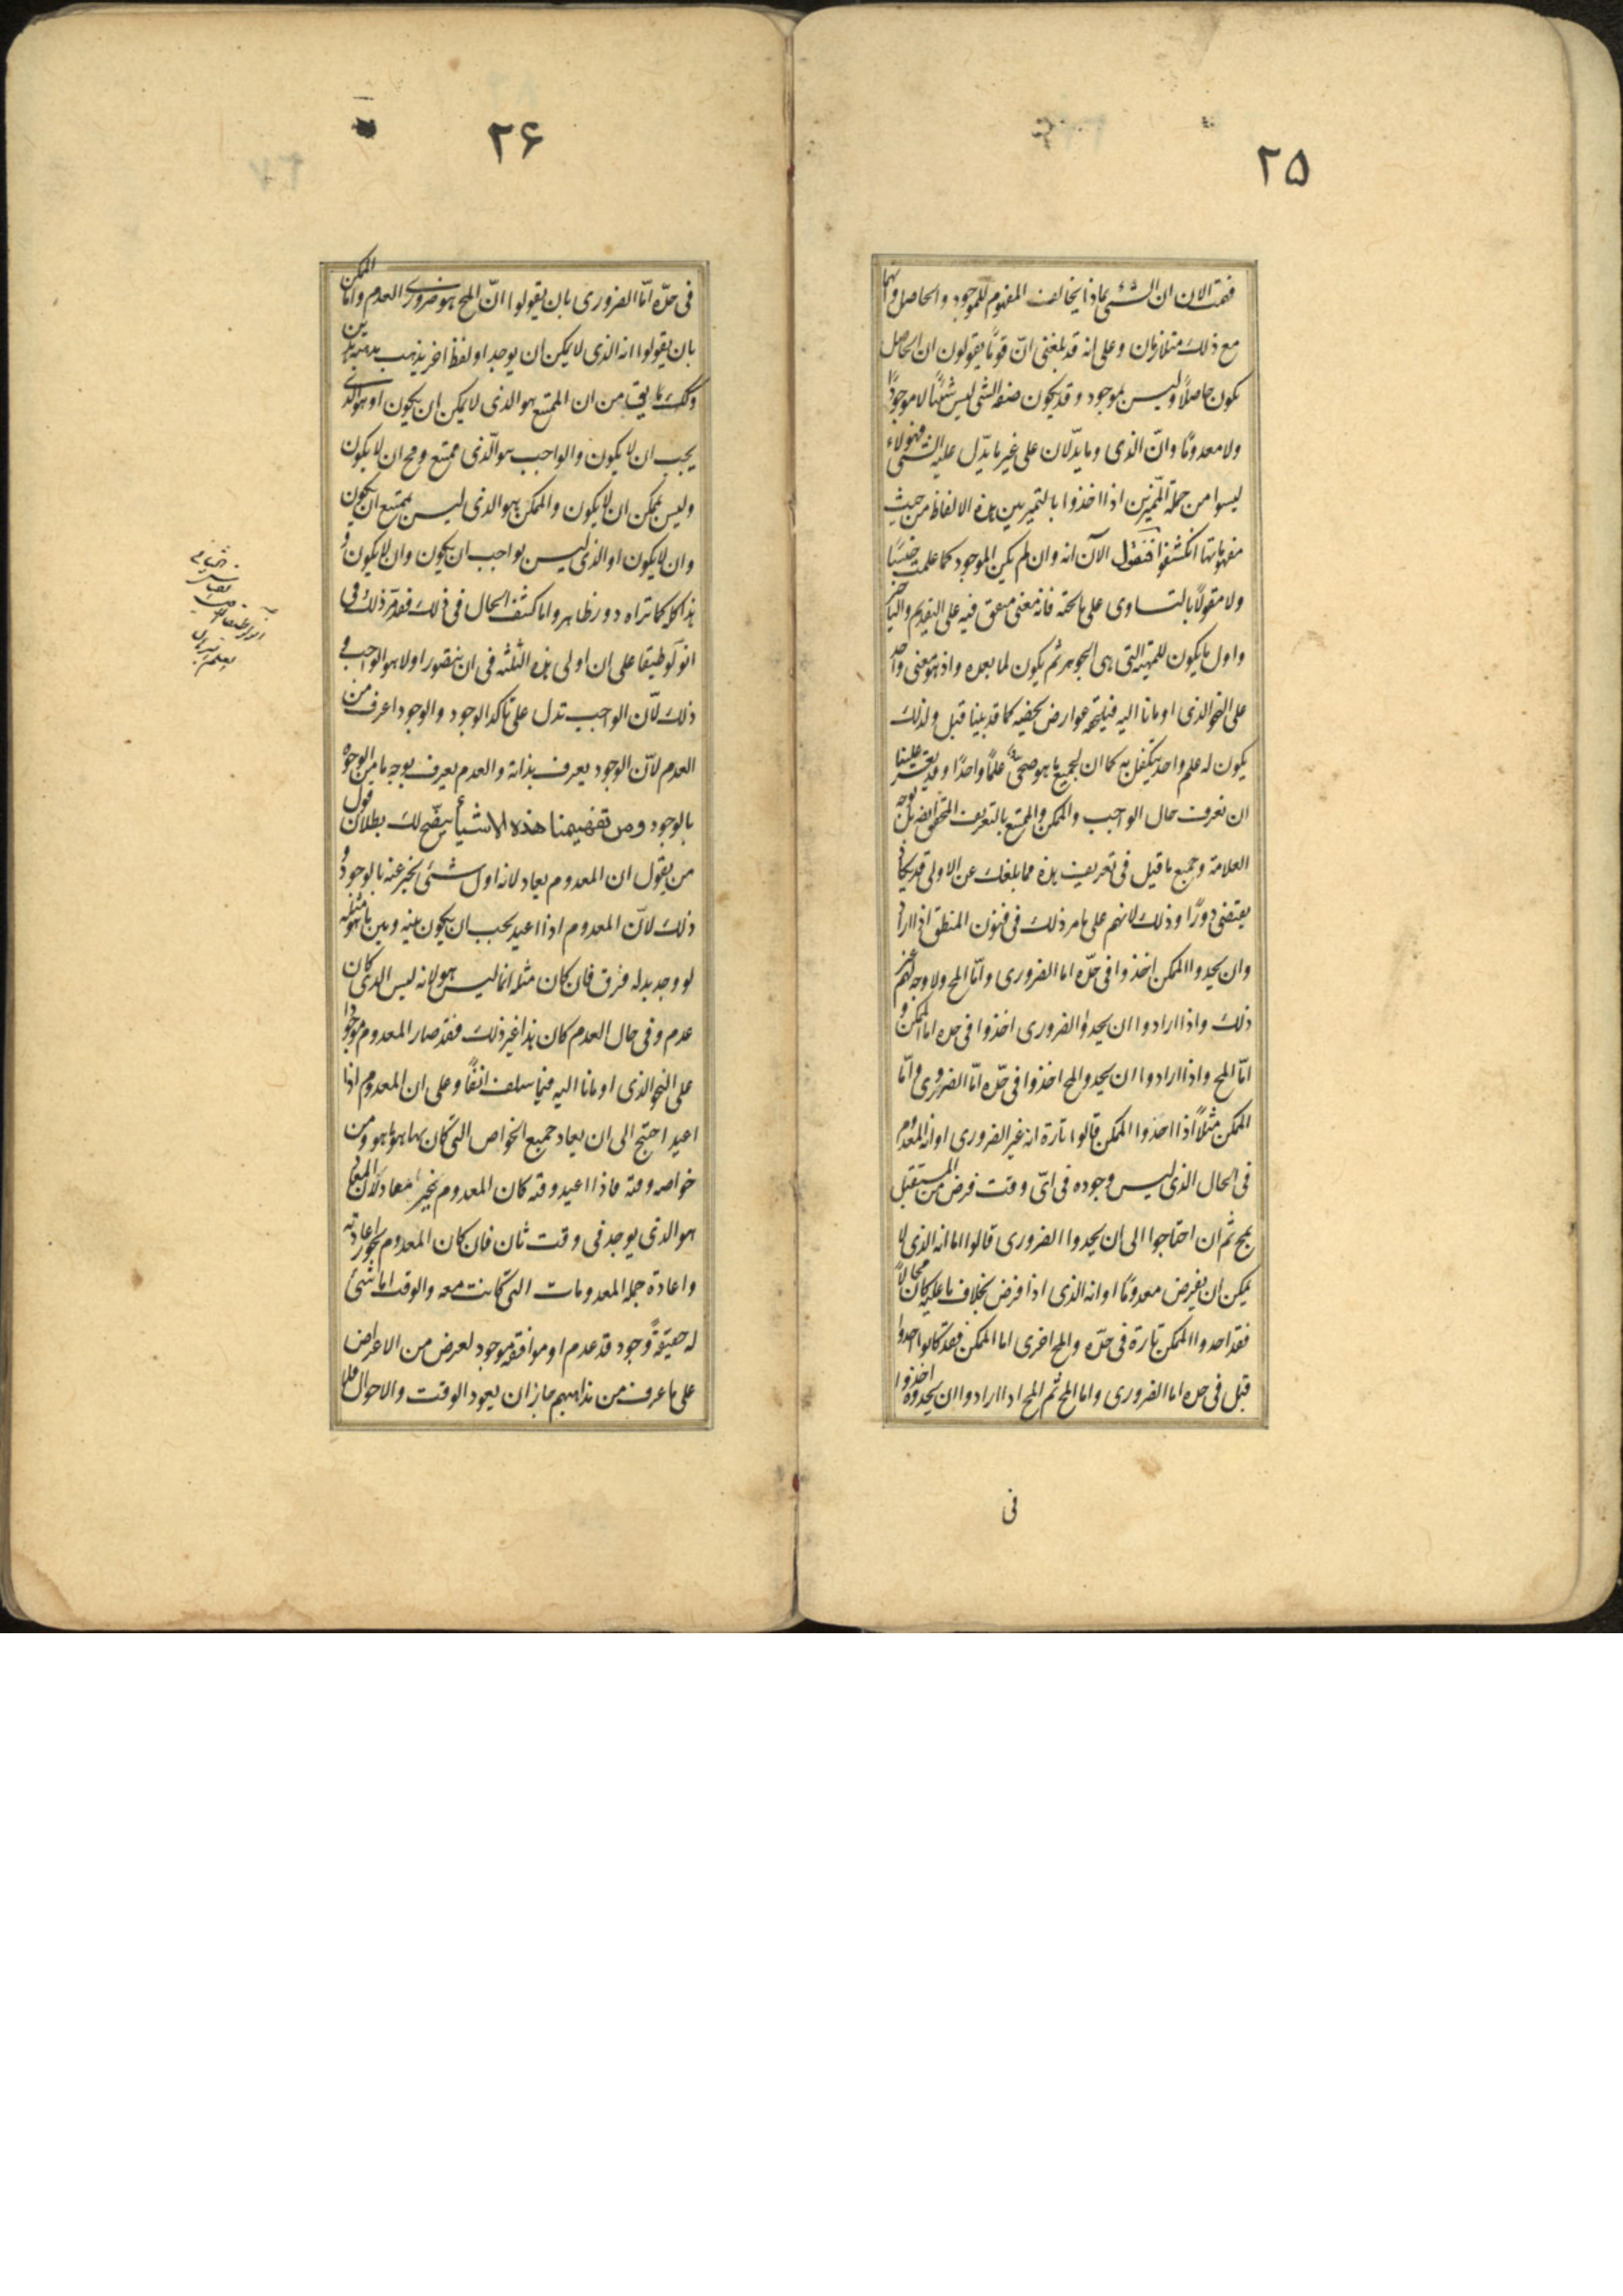 ۲۵
فهمت الان ان الشئ بماذا يخالف المفهوم للموجود والحاصل وانهما
مع ذلك متلازمان وعلى انه قد بلغنى انّ قومًا يقولون ان الحاصل
يكون حاصلًا وليس بموجود وقد يكون صفة الشى ليس شيئًا لا موجودًا
ولا معدومًا وانّ الذى وما يدّلان على غير ما يدّل عليه الشئ فهولاء
ليسوا من جملة المميّزين اذا اخذوا بالتميز بين هذه الالفاظ من حيث
مفهوماتها انكشفوا فنقول الآن انه وان لم يكن الموجود كما علمت جنسًا
ولا مقولًا بالتساوى على ما تحته فانه معنى متفق فيه على التقديم والتاخير
واول ما يكون للمهيّة التى هى الجوهر ثم يكون لما بعده واذ هو معنى واحد
على النحو الذى اومانا اليه فيلحقه عوارض تخصه كما قد بينا قبل ولذلك
يكون له علم واحد يتكفل به كما ان لجميع ما هو صحى علمًا واحدًا وقد يعسر علينا
ان نعرف حال الواجب والممكن والممتنع بالتعريف المحقق ايضا بل بوجه
العلامة وجميع ما قيل فى تعريف هذه مما بلغك عن الاولى قد يكاد
يقتضى دورًا وذلك لانهم على ما مر ذلك فى فنون المنطق اذا ارادوا
وان يحدوا الممكن اخذوا فى حدّه اما الضرورى وامّا المح ولا وجه لهم غير
ذلك واذا ارادوا ان يحدوا الضرورى اخذوا فى حده اما الممكن و
امّا المح واذا ارادوا ان يحدو المح اخذوا فى حدّه امّا الضرورى وامّا
الممكن مثلًا اذا احدوا الممكن قالوا تارة انه غير الضرورى او انه المعدوم
فى الحال الذى ليس وجوده فى اىّ وقت فرض من المستقبل
بمح ثم ان احتاجوا الى ان يحدوا الضرورى قالوا اما انه الذى لا
يمكن ان يفرض معدومًا او انه الذى اذا فرض بخلاف ما عليه كان محالًا
فقد احدوا الممكن تارة فى حدّه والمح اخرى اما الممكن فقد كانوا احدوا
قبل فى حده اما الضرورى واما المح ثم المح اذا ارادوا ان يحدوه اخذوا
فى
۲۶
فى حدّه امّا الضرورى بان يقولوا انّ المح هو ضرورى العدم واما الممكن
بان يقولوا انه الذى لا يمكن ان يوجد او لفظا اخر يذهب مذهب هذين
وكك ما يق من ان الممتنع هو الذى لا يمكن ان يكون او هو الذى
يجب ان لا يكون والواجب هو الّذى ممتنع ومح ان لا يكون
وليس بممكن ان لا يكون والممكن هو الذى ليس بممتنع ان يكون
وان لا يكون او الذى ليس بواجب ان يكون وان لا يكون و
هذا كله كما تراه دور ظاهر واما كشف الحال فى ذلك فقد مرّ ذلك فى
انولوطيقا على ان اولى هذه الثلثه فى ان يتصور اولا هو الواجب و
ذلك لانّ الواجب تدل على تاكد الوجود والوجود اعرف من
العدم لانّ الوجود يعرف بذاته والعدم يعرف بوجه ما من الوجوه
بالوجود ومن تفهيمنا هذه الاشيأ يتضح لك بطلان قول
من يقول ان المعدوم يعاد لانه اول شئ يخبر عنه بالوجود و
ذلك لانّ المعدوم اذا اعيد يجب ان يكون بينه وبين ما هو مثله
لو وجد بدله فرق فان كان مثله انما ليس هو لانه ليس الذى كان
عدم وفى حال العدم كان هذا غير ذلك فقد صار المعدوم موجودا
على النحو الذى اومانا اليه فيما سلف انفًا وعلى ان المعدوم اذا
اعيد احتج الى ان يعاد جميع الخواص التى كان بها هو ما هو ومن
خواصه وقته فاذا اعيد وقته كان المعدوم غير معاد لان المعاد
هو الذى يوجد فى وقت ثان فان كان المعدوم يجوز اعادته
واعادة جملة المعدومات التى كانت معه والوقت اما شئ
له حقيقة وجود قد عدم او موافقة موجود لعرض من الاعراض
على ما عرف من مذاهبهم جاز ان يعود الوقت والاحوال فلا